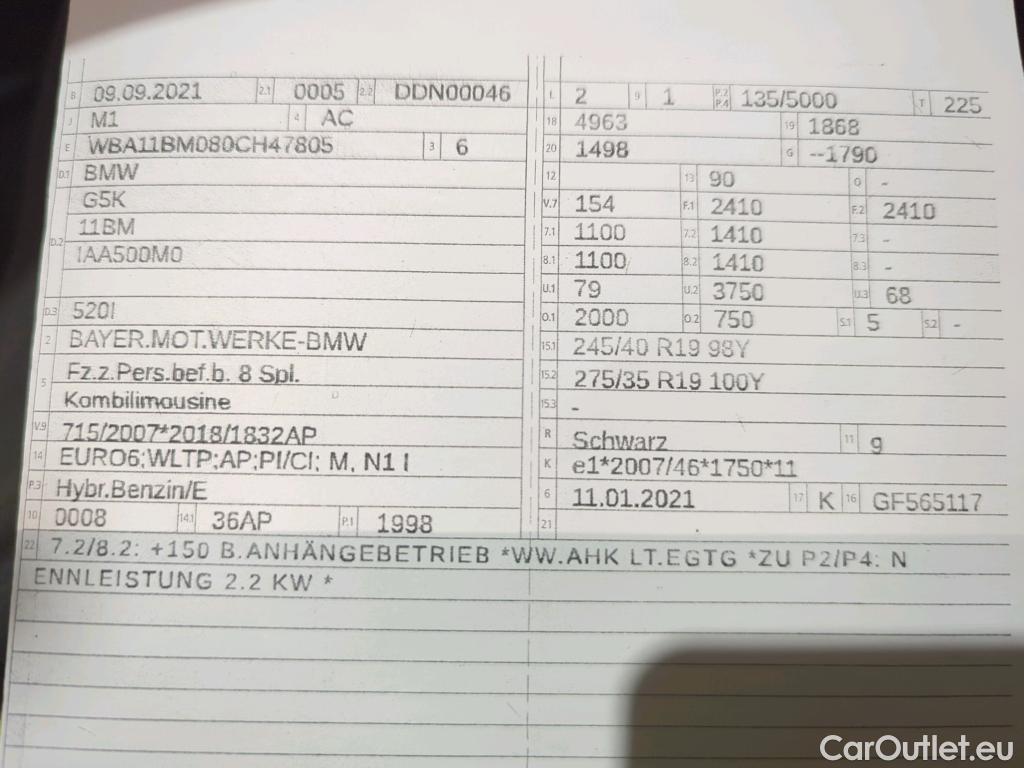 B 09.09.2021 2.1 0005 2.2 DDN00046
J M1 4 AC
E WBA11BM080CH47805 3 6
D.1 BMW
D.2 G5K
11BM
IAA500M0
D.3 520I
2 BAYER.MOT.WERKE-BMW
5 Fz.z.Pers.bef.b. 8 Spl.
Kombilimousine
V.9 715/2007*2018/1832AP
14 EURO6;WLTP;AP;PI/CI; M, N1 I
P.3 Hybr.Benzin/E
10 0008 14.1 36AP P.1 1998
L 2 9 1 P.2 P.4 135/5000 T 225
18 4963 19 1868
20 1498 G --1790
12 13 90 Q -
V.7 154 F.1 2410 F.2 2410
7.1 1100 7.2 1410 7.3 -
8.1 1100 8.2 1410 8.3 -
U.1 79 U.2 3750 U.3 68
O.1 2000 O.2 750 S.1 5 S.2 -
15.1 245/40 R19 98Y
15.2 275/35 R19 100Y
15.3 -
R Schwarz 11 9
K e1*2007/46*1750*11
6 11.01.2021 17 K 16 GF565117
21
22 7.2/8.2: +150 B.ANHÄNGEBETRIEB *WW.AHK LT.EGTG *ZU P2/P4: N
ENNLEISTUNG 2.2 KW *
CarOutlet.eu